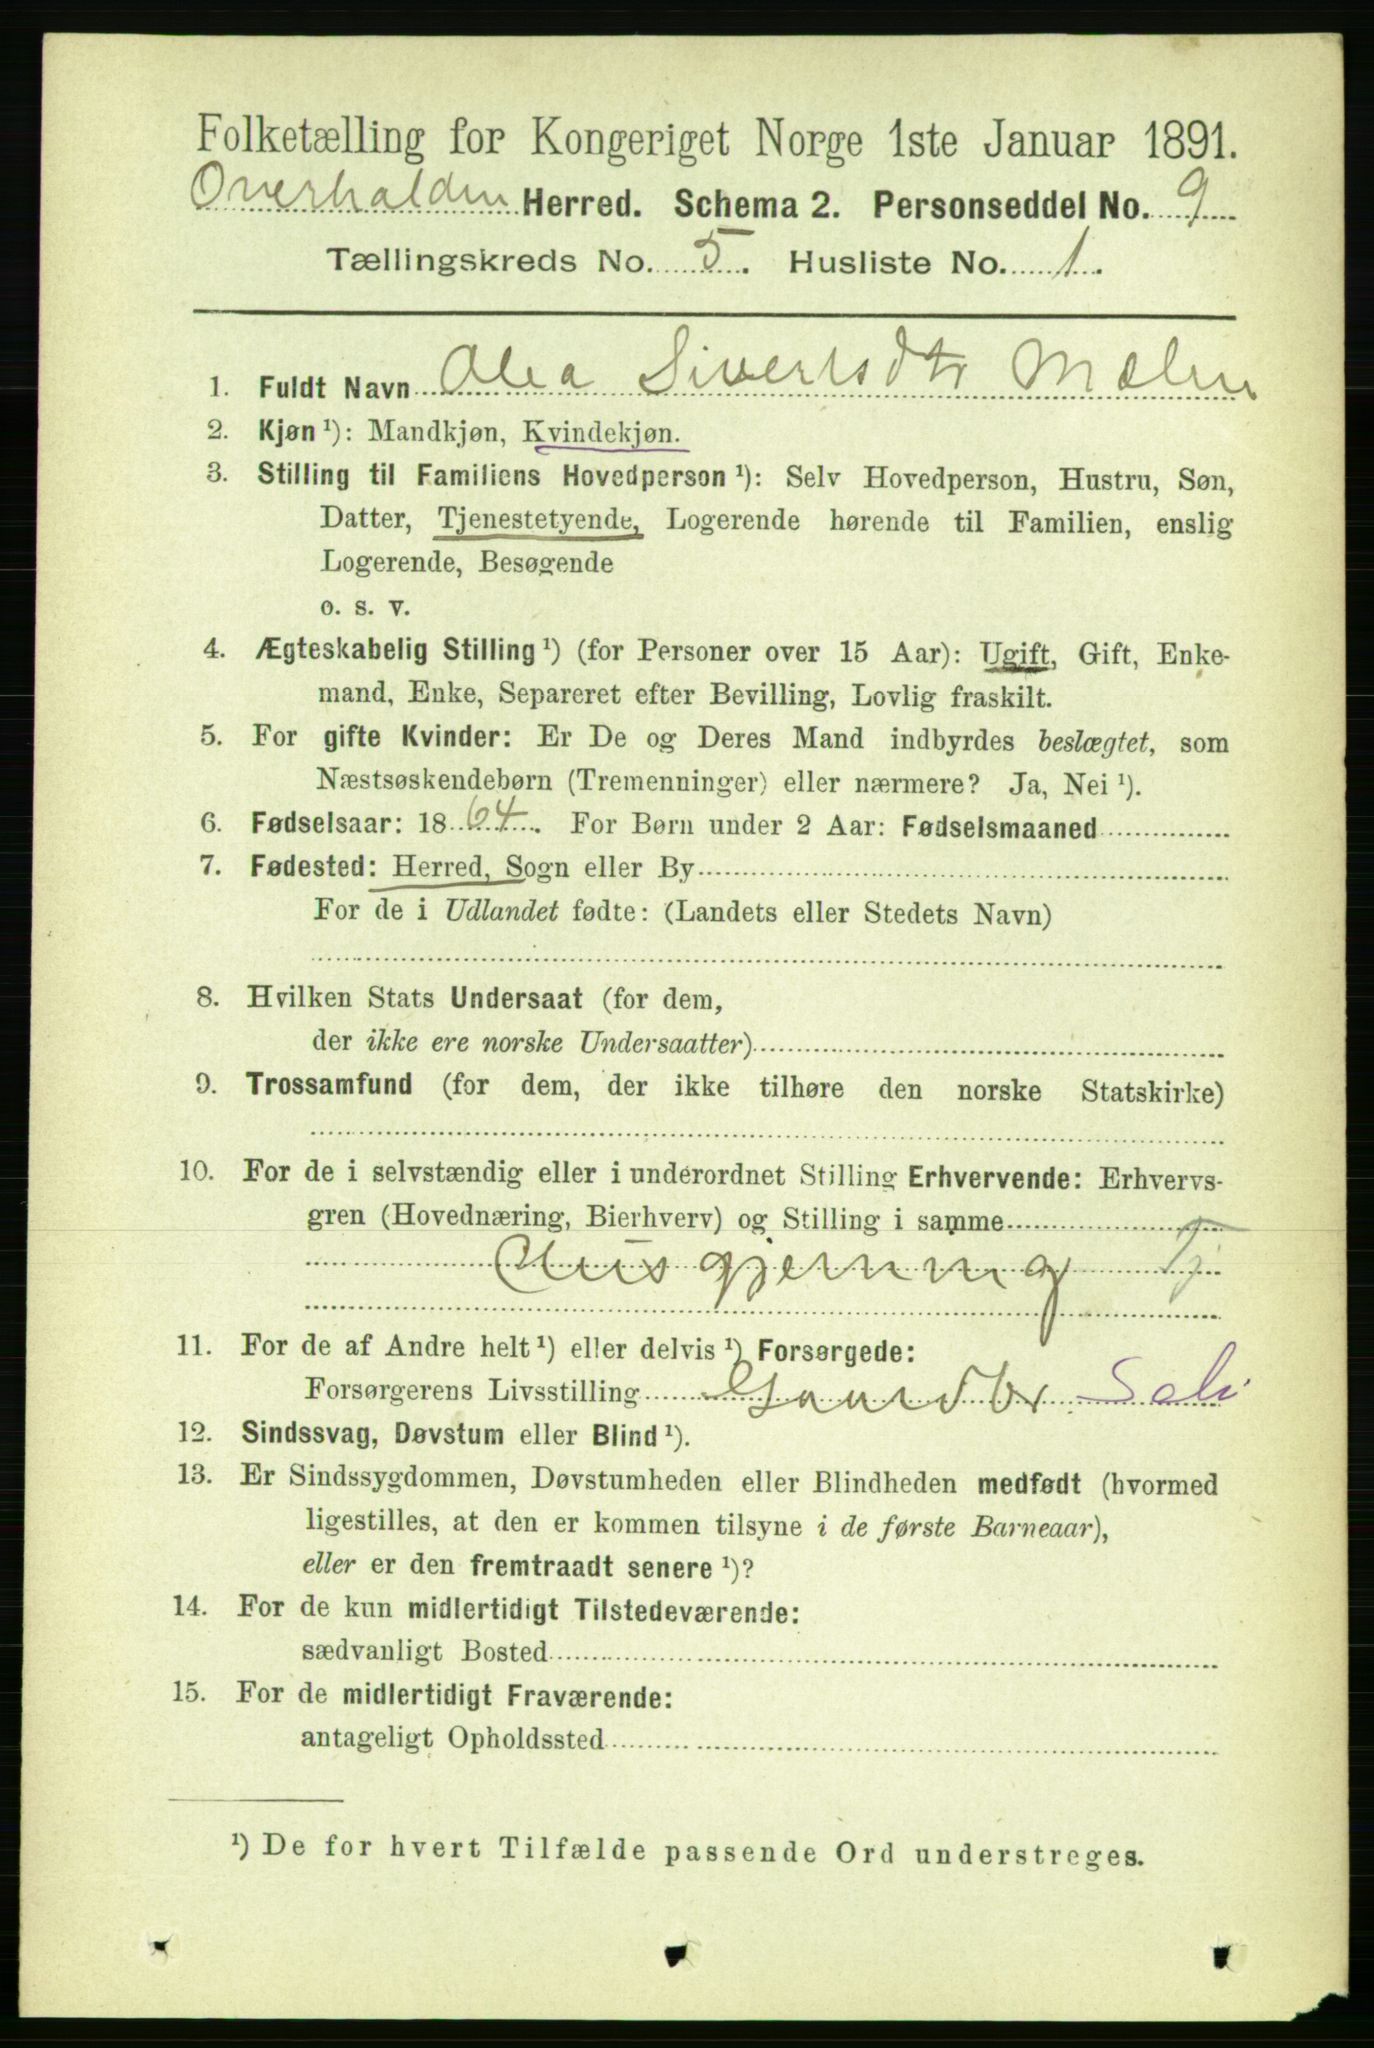 Folketælling for Kongeriget Norge 1ste Januar 1891.
Overhalden Herred. Schema 2. Personseddel No. 9
Tællingskreds No. 5. Husliste No. 1.
1. Fuldt Navn Olea Sivertsdtr Mælen
2. Kjøn ¹): Mandkjøn, Kvindekjøn.
3. Stilling til Familiens Hovedperson ¹): Selv Hovedperson, Hustru, Søn,
Datter, Tjenestetyende, Logerende hørende til Familien, enslig
Logerende, Besøgende
o. s. v.
4. Ægteskabelig Stilling ¹) (for Personer over 15 Aar): Ugift, Gift, Enke-
mand, Enke, Separeret efter Bevilling, Lovlig fraskilt.
5. For gifte Kvinder: Er De og Deres Mand indbyrdes beslægtet, som
Næstsøskendebørn (Tremenninger) eller nærmere? Ja, Nei ¹).
6. Fødselsaar: 1864. For Børn under 2 Aar: Fødselsmaaned
7. Fødested: Herred, Sogn eller By
For de i Udlandet fødte: (Landets eller Stedets Navn)
8. Hvilken Stats Undersaat (for dem,
der ikke ere norske Undersaatter)
9. Trossamfund (for dem, der ikke tilhøre den norske Statskirke)
10. For de i selvstændig eller i underordnet Stilling Erhvervende: Erhvervs-
gren (Hovednæring, Bierhverv) og Stilling i samme
Husgjerning Tj
11. For de af Andre helt ¹) eller delvis ¹) Forsørgede:
Forsørgerens Livsstilling Gaardbr Selv
12. Sindssvag, Døvstum eller Blind ¹).
13. Er Sindssygdommen, Døvstumheden eller Blindheden medfødt (hvormed
ligestilles, at den er kommen tilsyne i de første Barneaar),
eller er den fremtraadt senere ¹)?
14. For de kun midlertidigt Tilstedeværende:
sædvanligt Bosted
15. For de midlertidigt Fraværende:
antageligt Opholdssted
¹) De for hvert Tilfælde passende Ord understreges.